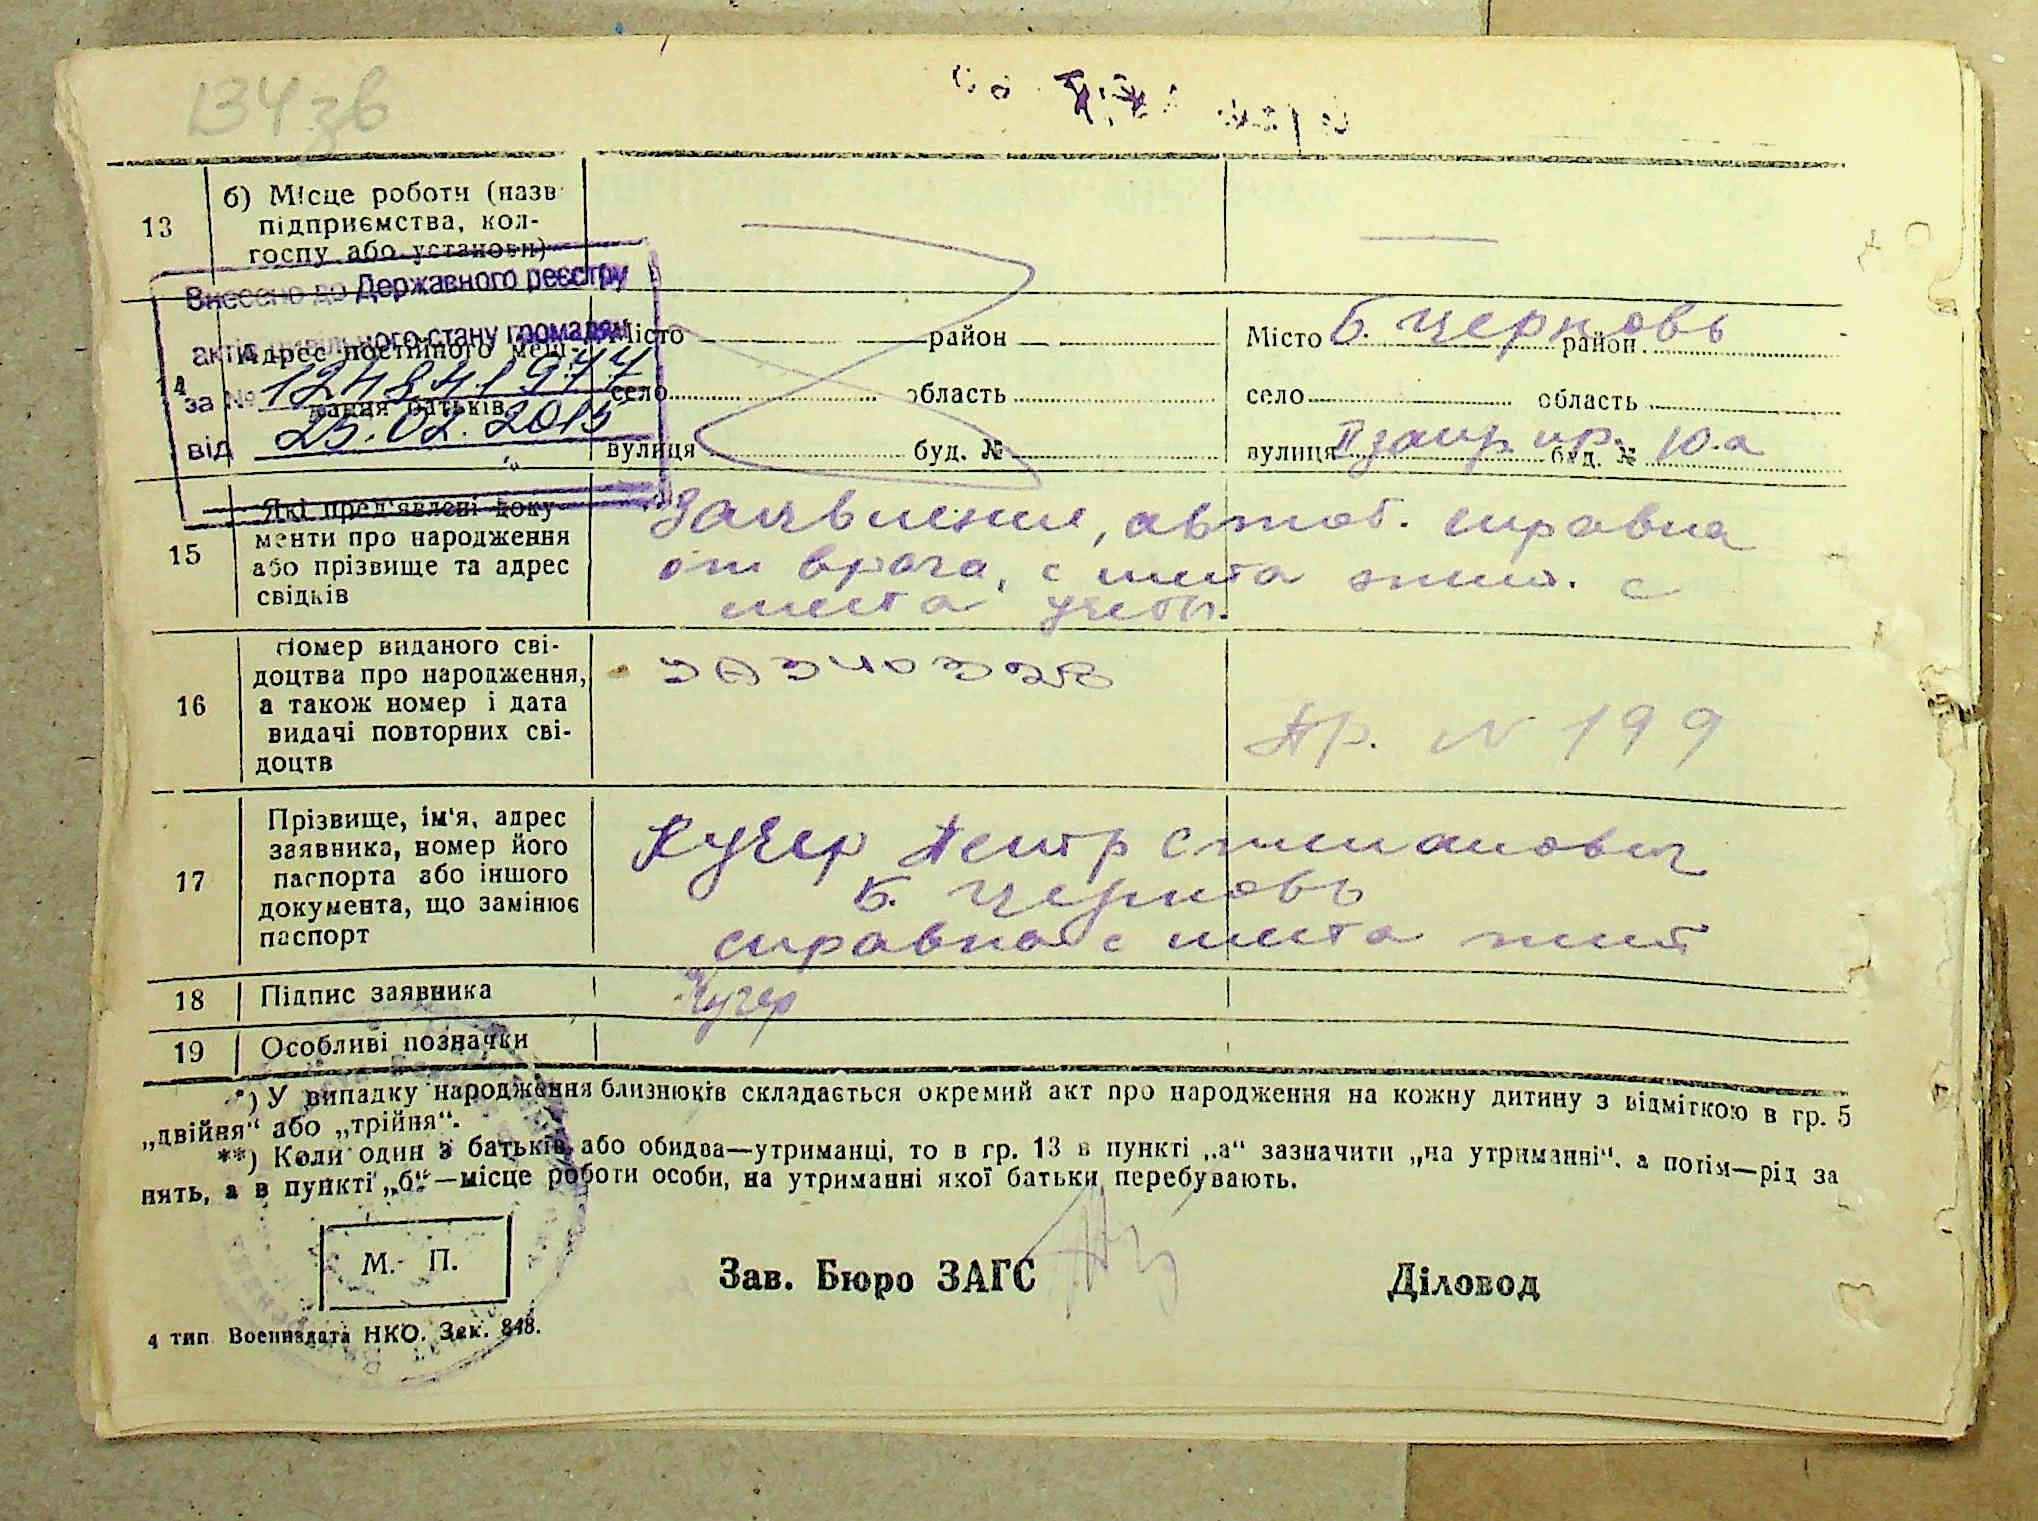 134 зв
13
б) Місце роботи (назв
підприємства, кол-
госпу або установи)
Внесено до Державного реєстру
актів цивільного стану громадян
за №
від 25.02.2015
14
Адрес постійного меш-
кання батьків
Місто район
село область
вулиця буд. №
Місто Б. Церковь район
село область
вулиця буд. № 10.а
15
Які пред'явлені доку-
менти про народження
або прізвище та адрес
свідків
Заявление, справка
от врача, с места жит. с
места учебы.
16
Номер виданого сві-
доцтва про народження,
а також номер і дата
видачі повторних сві-
доцтв
Пр. N 199
17
Прізвище, ім'я, адрес
заявника, номер його
паспорта або іншого
документа, що замінює
паспорт
Кучер Петр Степанович
Б. Церковь
справка с места жит
18
Підпис заявника
Кучер
19
Особливі позначки
*) У випадку народження близнюків складається окремий акт про народження на кожну дитину з відміткою в гр. 5
„двійня“ або „трійня“.
**) Коли один з батьків або обидва—утриманці, то в гр. 13 в пункті „а“ зазначити „на утриманні“, а потім—рід за
нять, а в пункті „б“—місце роботи особи, на утриманні якої батьки перебувають.
М. П.
Зав. Бюро ЗАГС
Діловод
4 тип Воениздата НКО. Зак. 848.